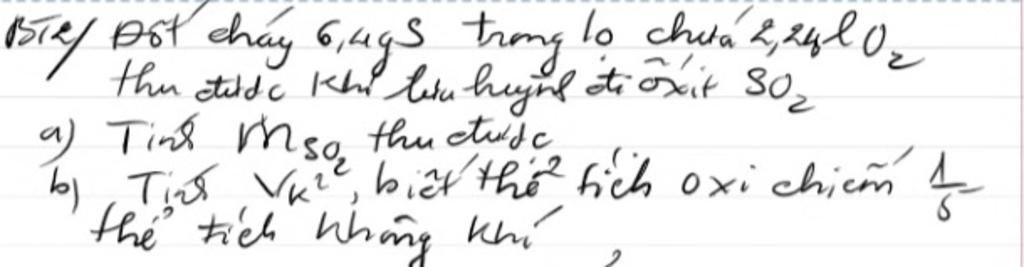 BT2/ Đốt cháy 6,4g S trong lọ chứa 2,24l O₂
thu được khí lưu huỳnh đi ôxit SO₂
a) Tính m SO₂ thu được
b) Tính Vkk, biết thể tích oxi chiếm 1/5
thể tích không khí